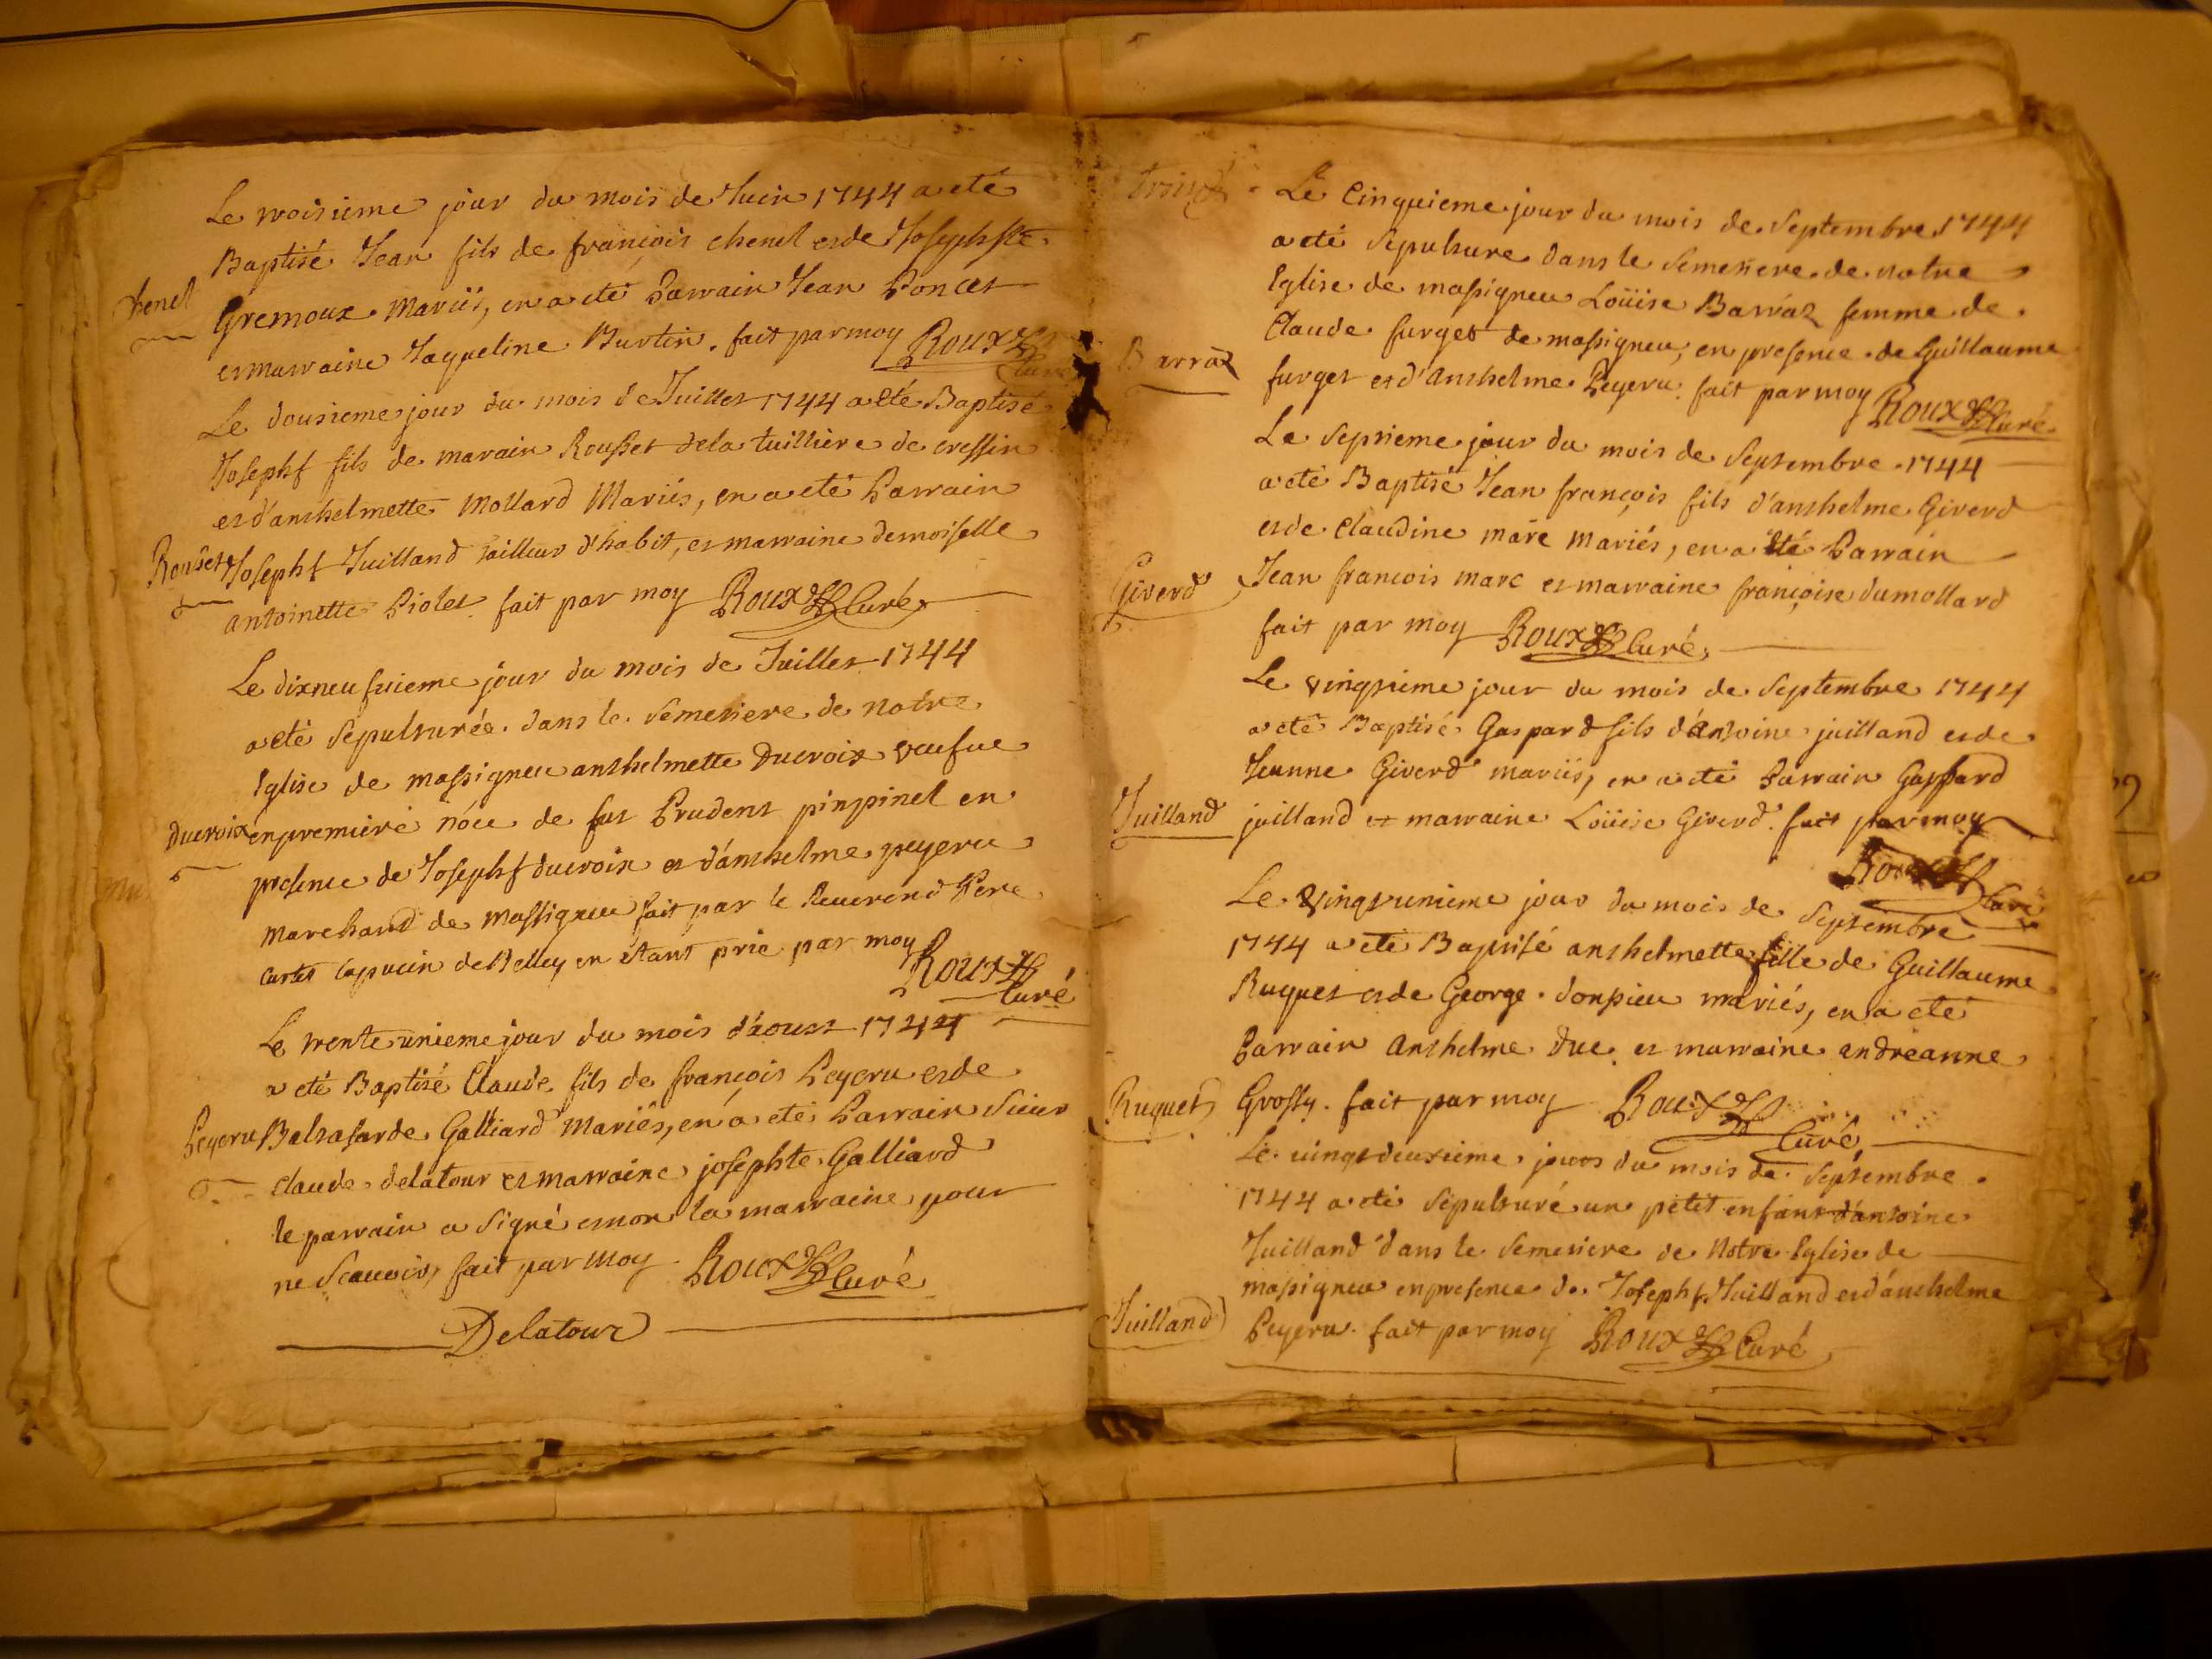 Le troisieme jour du mois de Juin 1744 a eté
Baptisé Jean fils de françois chenel et de Josephste
chenel
Gremoux Mariés, en a eté Parrain Jean Poncet
et marraine Jaqueline Burtin. fait par moy Roux Curé
Le dousieme jour du mois de Juillet 1744 a eté Baptisé
Josephf fils de marain Rousset dela tuilliere de cressin
et d'anthelmette Mollard Mariés, en a eté Parrain
Rousset Josephf Juilland tailleur d'habit, et marraine demoiselle
antoinette Piolet fait par moy Roux Curé
Le dixneufuieme jour du mois de Juillet 1744
a eté sepulturée dans le semetiere de notre
Eglise de massigneu anthelmette Ducroix veufue
Ducroix en premiere nóce de fut Prudent pinpinel en
presence de Josephf ducroix et d'anthelme peyeru
marchand de massigneu fait par le Reuerend Pere
Curtet capucin de Belley en etant prie par moy Roux
Curé
Le trente unieme jour du mois d'aoust 1744
a eté Baptisé Claude fils de françois Peyeru et de
Peyeru Baltasarde Galliard Mariés, en a eté Parrain sieur
claude delatour et marraine josephte Galliard
le parrain a signé et non la marraine pour
ne scauoir, fait par moy Roux Curé
Delatour
Le Cinquieme jour du mois de Septembre 1744
a eté sepulture dans le semetiere de notre
Eglise de massigneu Loüise Barraz femme de
Claude furget de massigneu, en presence de Guillaume
Barraz furget et d'anthelme Peyeru. fait par moy Roux Curé
Le septieme jour du mois de Septembre 1744
a eté Baptisé Jean françois fils d'anthelme Giverd
et de Claudine marc mariés, en a eté Parrain
Giverd Jean francois marc et marraine françoise dumollard
fait par moy Roux Curé
Le vingtieme jour du mois de Septembre 1744
a eté Baptisé Gaspard fils d'antoine juilland et de
Jeanne Giverd mariés, en a eté Parrain Gaspard
Juilland juilland et marraine Loüise Giverd. fait par moy
Roux Curé
Le vingtunieme jour du mois de Septembre
1744 a eté Baptisé anthelmette fille de Guillaume
Ruquet et de George donpieu mariés, en a eté
Parrain Anthelme Duc et marraine andréanne
Ruquet Grossy. fait par moy Roux
Curé
Le uingtdeuxieme jours du mois de Septembre
1744 a eté sepulturé un petit enfant d'antoine
Juilland dans le semetiere de Notre Eglise de
massigneu en presence de Josephf Juilland et d'anthelme
Juilland Peyeru. fait par moy Roux Curé